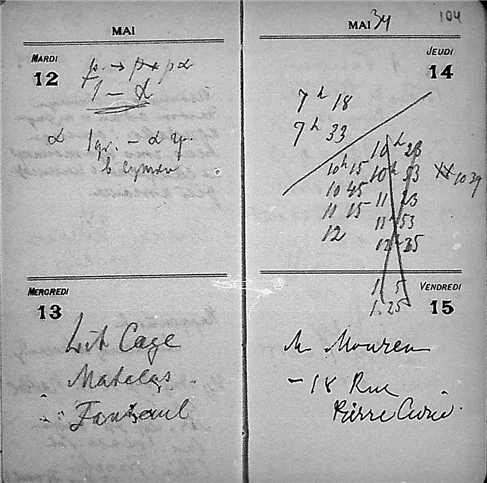 MAI
MARDI
12
1 - α
α 1gr. - α y.
MERCREDI
13
Lit Cage
Matelas
Fauteuil
MAI 34
104
JEUDI
14
7 h 18
9 h 33
10 h 15
10 45
11 15
12
10 h 23
10 h 53
11 23
11 53
12 25
1 5
1.25
XX 10 39
VENDREDI
15
M Moureu
- 18 Rue
Pierre Curie.